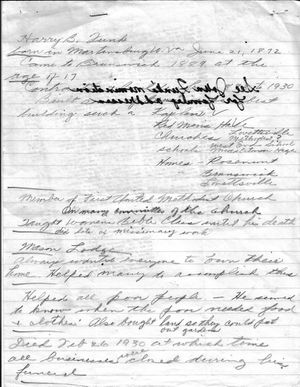 Harry B. Funk
born in Martinsburg W. Va June 21, 1872
Came to Brunswick 1889 at the
age of 17
See John Funk's nomination
for family addresses
1930
Built
building such as
Red Mens Hall
Churches Lovettsville
Methodist
School West End School
High
Homes - Rosemont
Brunswick
Lovettsville
Member of First United Methodist Church
On many committees of the church
Taught Womens Bible Class until his death
Did lots of missionary work
Mason Lodge
Always wanted everyone to own their
home. Helped many to accomplish this
Helped all poor people - He seemed
to know when the poor needed food
& clothes. Also bought land so they could put
out gardens
Died Feb 26 1930 at which time
all businesses were closed during his
funeral